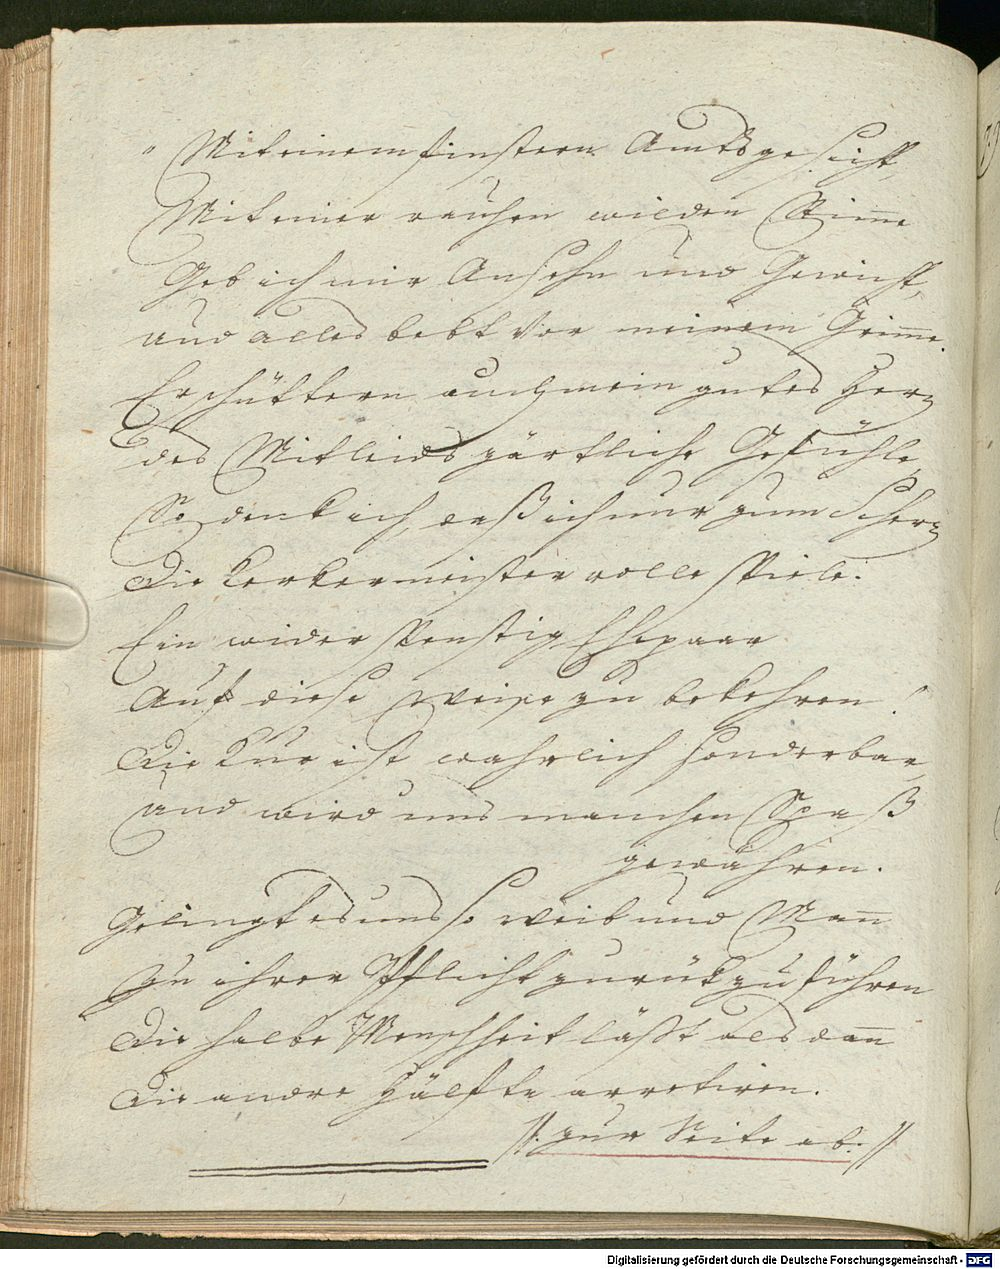 " Mit einem finstern Amtsgesicht,
Mit einer rauhen wilden Stim̅e
Geb ich mir Ansehn und Gewicht,
und alles bebt vor meinem Grim̅e.
Erschüttern auch mein gutes Herz
des Mitleids zärtliche Gefühle,
So denk ich, daß ich nur zum Scherz
Die Kerkermeister rolle spiele.
Ein widerspenstig Ehepaar
Auf diese Weise zu bekehren!
Die Kur ist wahrlich sonderbar,
und wird uns manchen Spaß
gewähren.
Gelingt es uns so Weib und Man̅
Zu ihrer Pflicht zurük zu führen
Die halbe Menschheit läßt als dan̅
Die andre Hälfte arretiren.
//: zur Seite ab. //
Digitalisierung gefördert durch die Deutsche Forschungsgemeinschaft - DFG